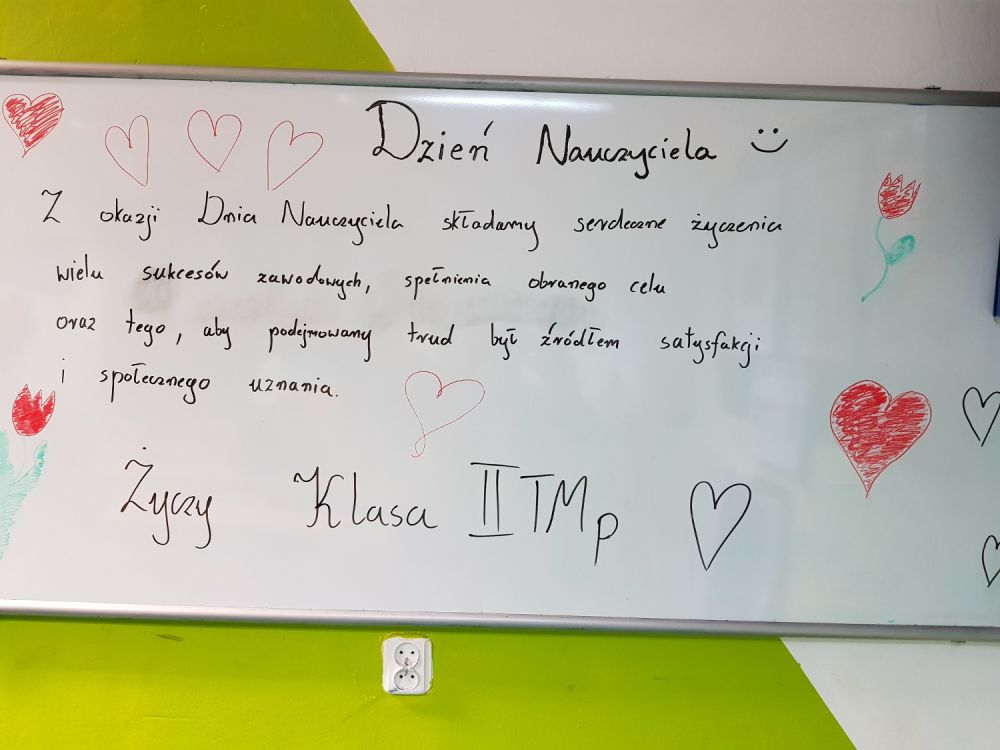 Dzień Nauczyciela
Z okazji Dnia Nauczyciela składamy serdeczne życzenia
wielu sukcesów zawodowych, spełnienia obranego celu
oraz tego, aby podejmowany trud był źródłem satysfakcji
i społecznego uznania.
Życzy Klasa II TMp